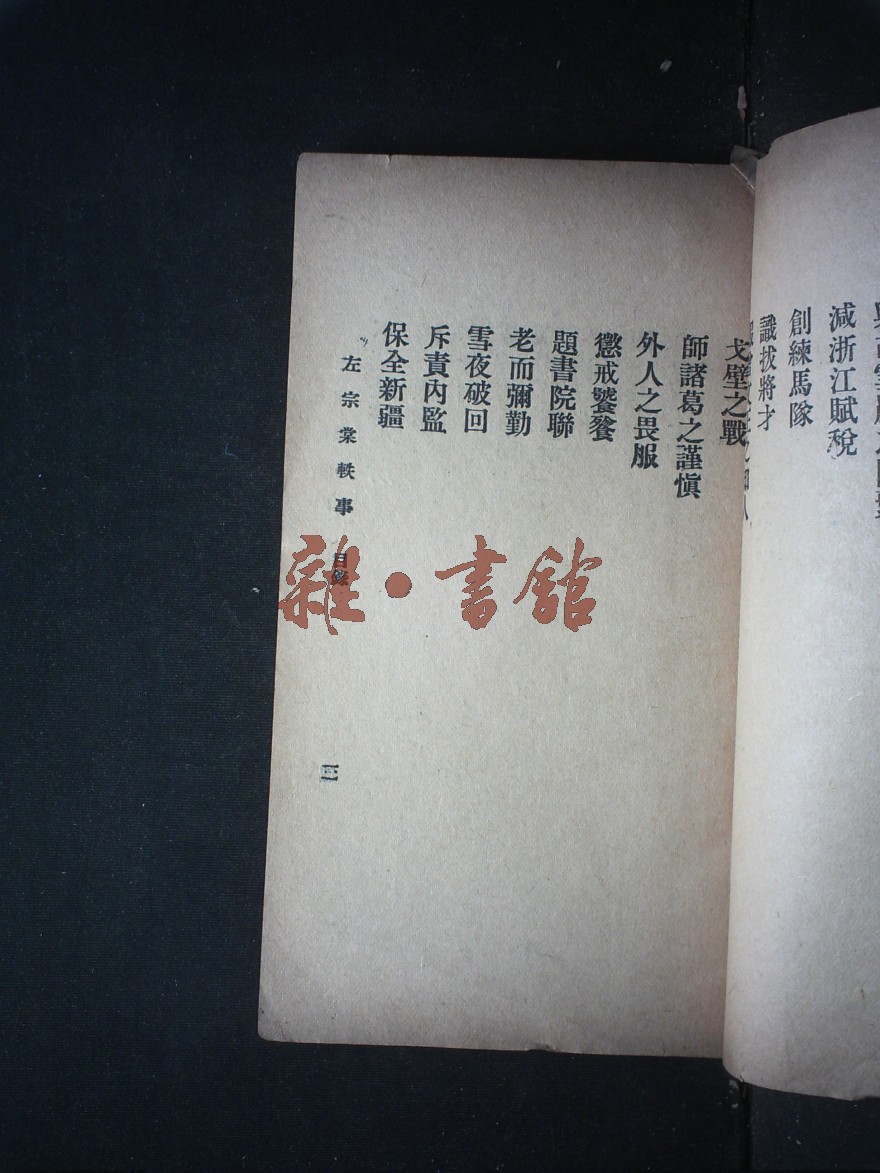 減浙江賦稅
創練馬隊
識拔將才
戈壁之戰
師諸葛之謹慎
外人之畏服
懲戒饕餮
題書院聯
老而彌勤
雪夜破回
斥責內監
保全新疆
左宗棠軼事 目錄
三
雜·書館